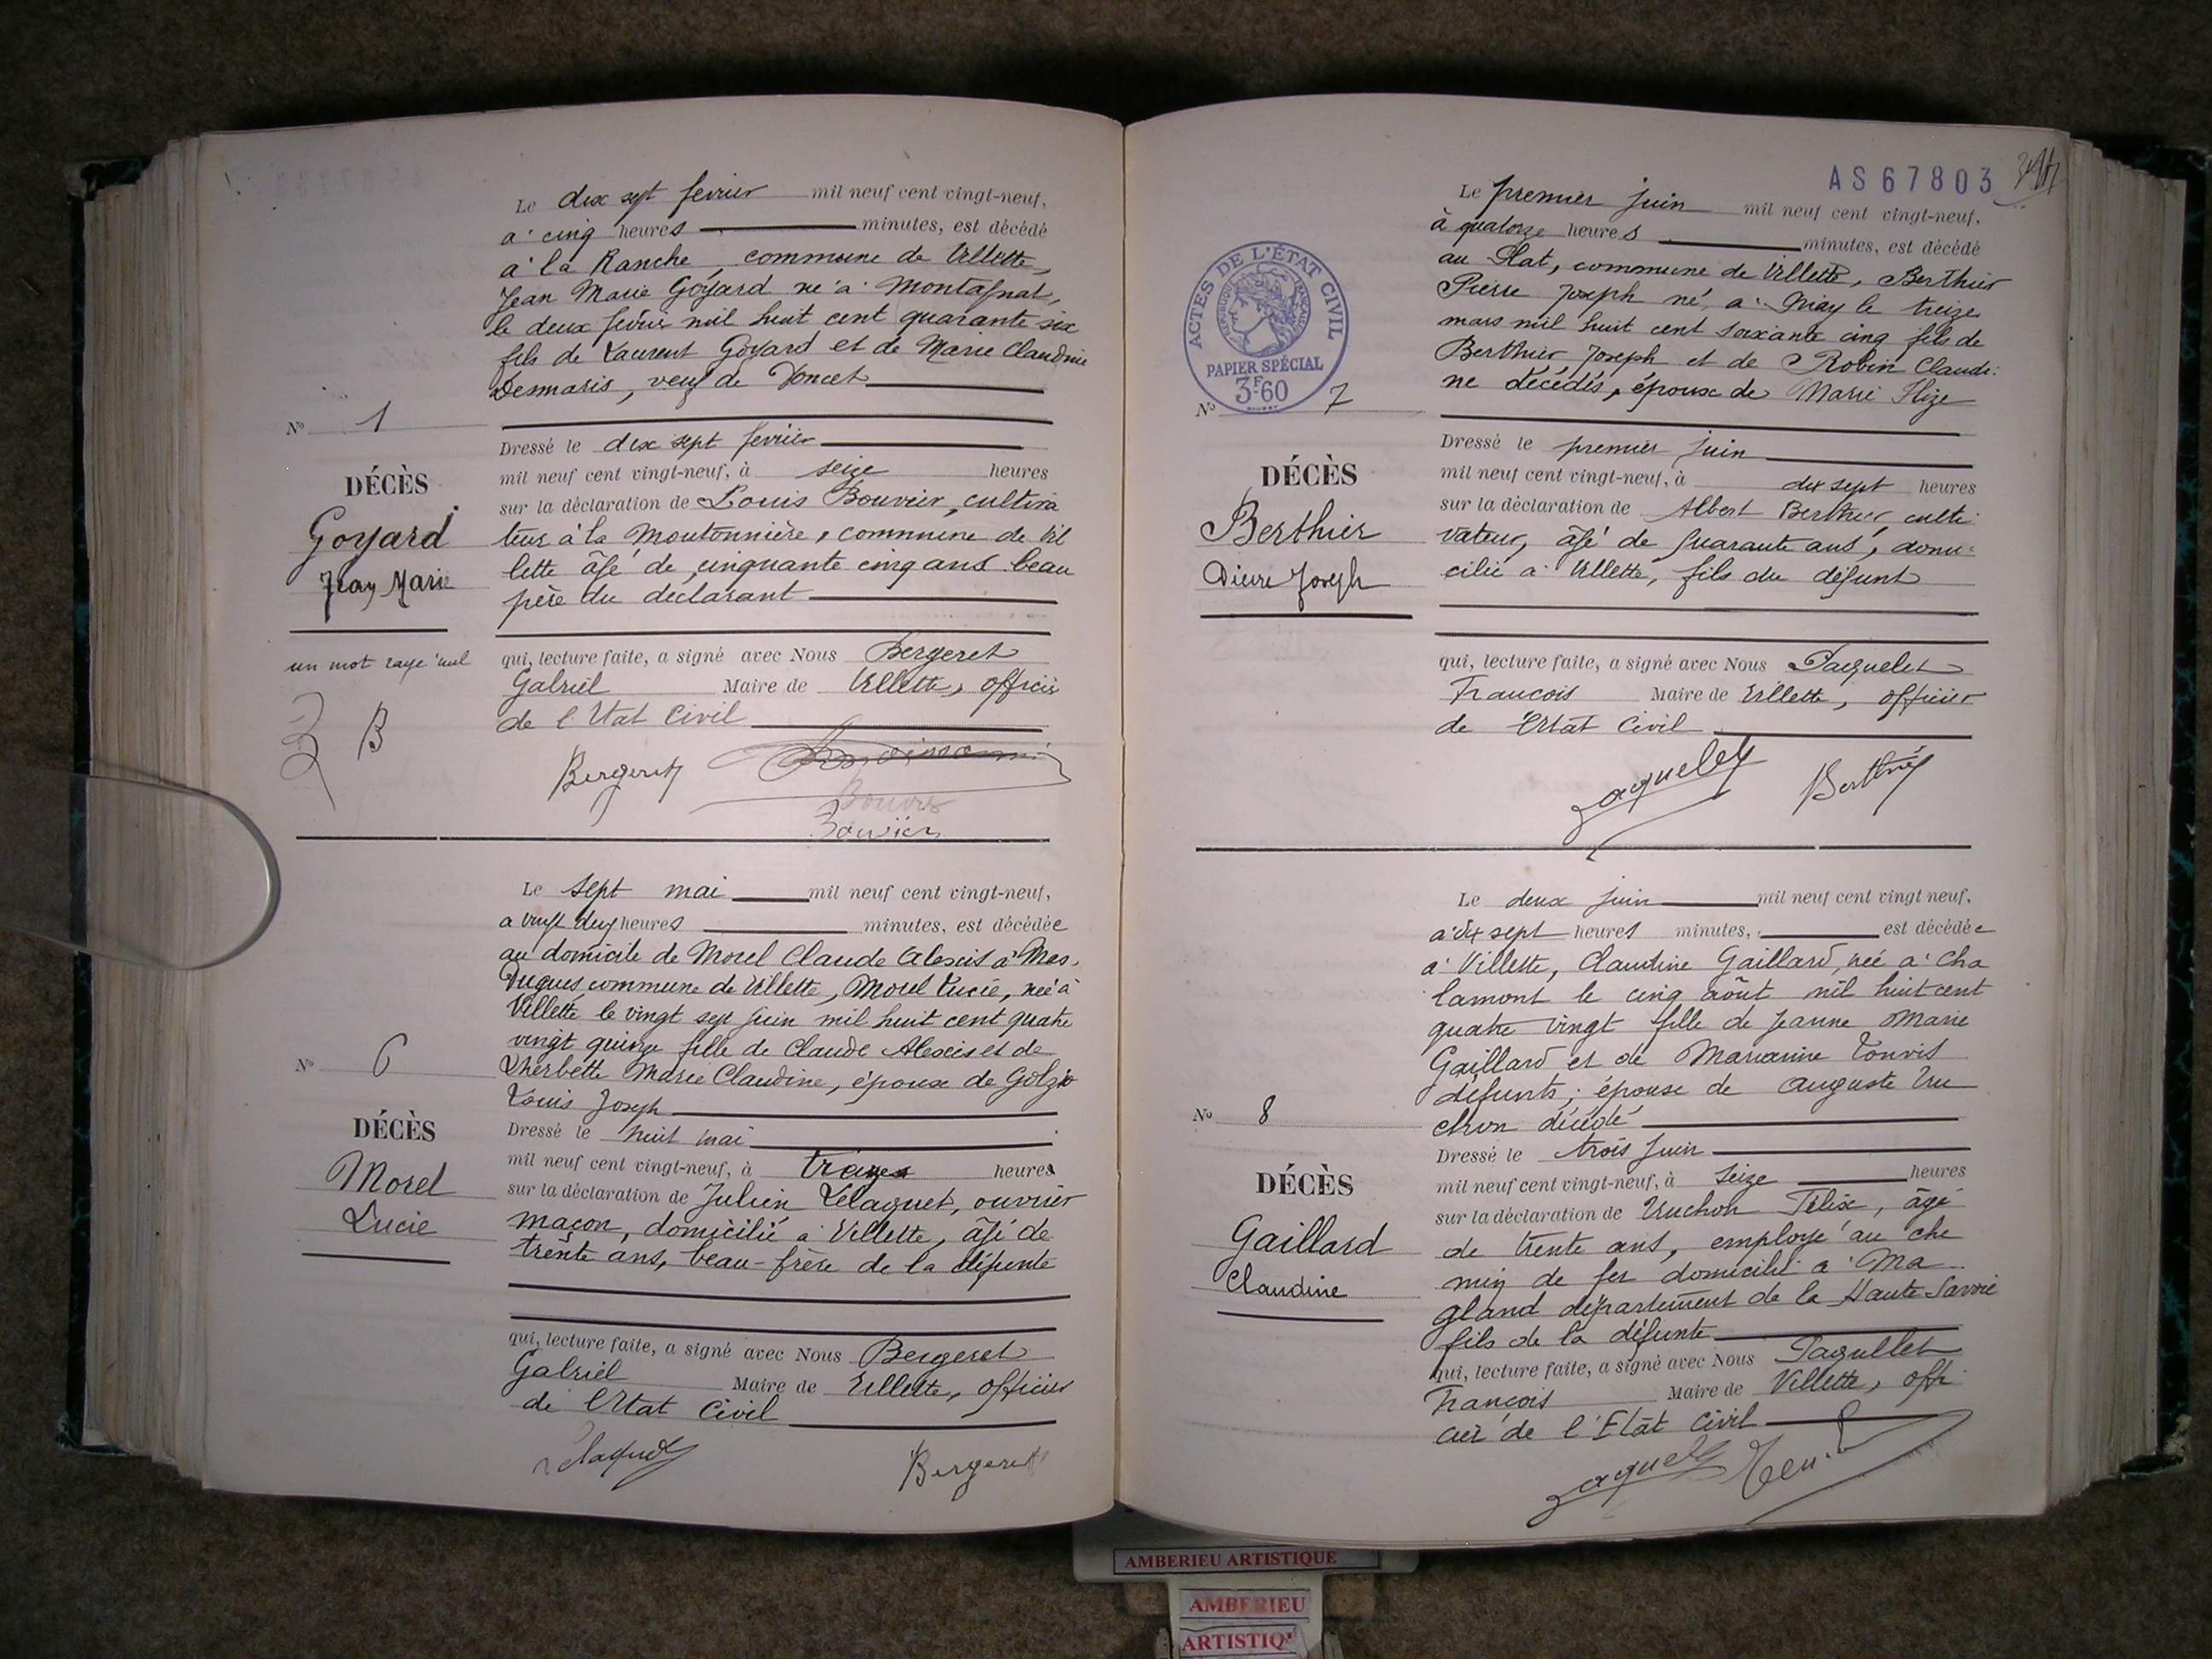 Le dix sept fevrier mil neuf cent vingt-neuf,
a cinq heures minutes, est décédé
a la Ranche, commune de Villette,
Jean Marie Goyard né a Montagnat,
le deux fevrier mil huit cent quarante six
fils de Laurent Goyard et de Marie Claudine
Desmaris, veuf de Poncet
No 1
DÉCÈS
Goyard
Jean Marie
Dressé le dix sept fevrier
mil neuf cent vingt-neuf, à seize heures
sur la déclaration de Louis Bouvier, cultiva
teur à la Moutonnière, commune de Vil
lette âgé de cinquante cinq ans beau
père du declarant
un mot rayé nul
B
qui, lecture faite, a signé avec Nous Bergeret
Gabriel Maire de Villette, officier
de l'Etat Civil
Bergeret
Bouvier
Bouvier
Le sept mai mil neuf cent vingt-neuf,
a vingt deux heures minutes, est décédée
au domicile de Morel Claude Alexis a Mas
commune de Villette, Morel Lucie, née à
Villette le vingt sept juin mil huit cent quatre
vingt quinze fille de Claude Alexis et de
Lherbette Marie Claudine, épouse de
Louis Joseph
No 6
DÉCÈS
Morel
Lucie
Dressé le huit mai
mil neuf cent vingt-neuf, à heures
sur la déclaration de Julien Velaquet, ouvrier
maçon, domicilié a Villette, âgé de
trente ans, beau-frère de la défunte
qui, lecture faite, a signé avec Nous Bergeret
Gabriel Maire de Villette, officier
de l'Etat Civil
Bergeret
AS67803
Le premier juin mil neuf cent vingt-neuf,
à quatorze heures minutes, est décédé
au Plat, commune de Villette, Berthier
Pierre Joseph né, a Priay le treize
mars mil huit cent soixante cinq fils de
Berthier Joseph et de Robin Claudi-
ne décédés, époux de Marie
ACTES DE L'ÉTAT CIVIL
RÉPUBLIQUE FRANÇAISE
PAPIER SPÉCIAL
3F60
No 7
DÉCÈS
Berthier
Pierre Joseph
Dressé le premier juin
mil neuf cent vingt-neuf, à dix sept heures
sur la déclaration de Albert Berthier culti
vateur, âgé de quarante ans, domi-
cilié a Villette, fils du défunt
qui, lecture faite, a signé avec Nous Paquelet
Francois Maire de Villette, officier
de l'Etat Civil
Paquelet Berthier
Le deux juin mil neuf cent vingt neuf,
a dix sept heures minutes, est décédée
a Villette, Claudine Gaillard, née a Cha
lamont le cinq août mil huit cent
quatre vingt fille de Jeanne Marie
Gaillard et de Marianne
défunts; épouse de Auguste Tru
chon décédé
No 8
DÉCÈS
Gaillard
Claudine
Dressé le trois juin
mil neuf cent vingt-neuf, à seize heures
sur la déclaration de Truchon Félix, âgé
de trente ans, employé au che
min de fer domicilié a Ma
gland département de la Haute Savoie
fils de la défunte
qui, lecture faite, a signé avec Nous Paquellet
François Maire de Villette, offi
cier de l'Etat Civil
Paquelet
AMBERIEU ARTISTIQUE
AMBERIEU
ARTISTIQ